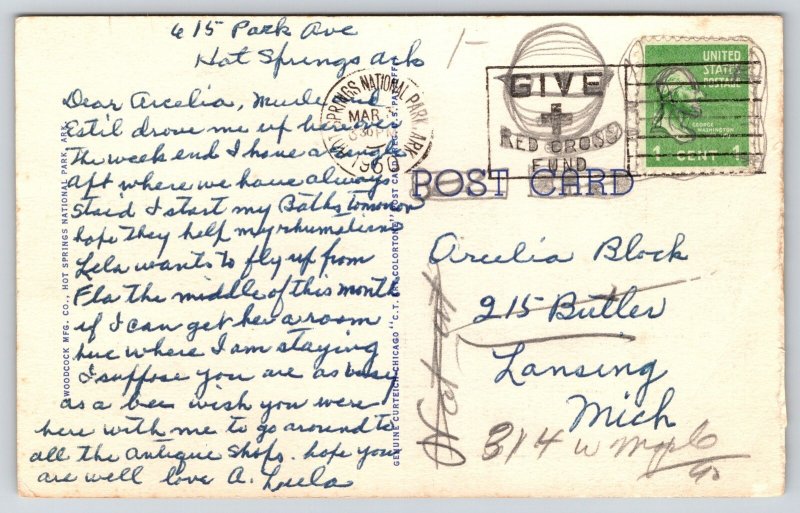 615 Park Ave
Hot Springs Ark
Dear Arcelia, Murley and
Estil drove me up here over
the week end I have a single
apt where we have always
staid I start my Baths tomorrow
hope they help my rhumatism
Lela wants to fly up from
Fla the middle of this month
if I can get her a room
here where I am staying
I suppose you are as busy
as a bee wish you were
here with me to go around to
all the antique shops. hope you
are well love A. Luela
WOODCOCK MFG. CO., HOT SPRINGS NATIONAL PARK, ARK.
GENUINE CURTEICH-CHICAGO "C.T. ART-COLORTONE" POST CARD (REG. U.S. PAT. OFF.)
SPRINGS NATIONAL PARK, ARK.
MAR
PM
1960
GIVE
RED CROSS
FUND
UNITED
STATES
POSTAGE
GEORGE
WASHINGTON
1 CENT 1
POST CARD
Arcelia Block
215 Butler
Lansing
Mich
Not at
314 W Maple